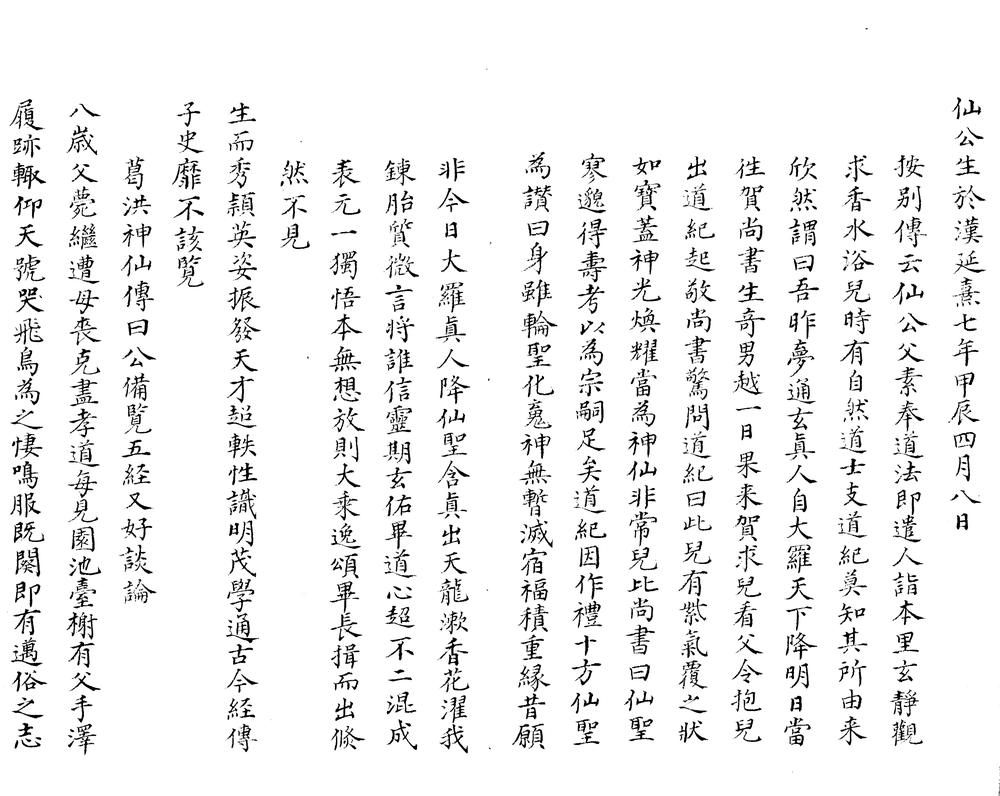 仙公生於漢延熹七年甲辰四月八日
按别傳云仙公父素奉道法即遣人詣本里玄靜觀
求香水浴兒時有自然道士支道紀莫知其所由来
欣然謂曰吾昨夢通玄真人自大羅天下降明日當
往賀尚書生奇男越一日果来賀求兒看父令抱兒
出道紀起敬尚書驚問道紀曰此兒有紫氣覆之狀
如寳蓋神光煥耀當為神仙非常兒比尚書曰仙聖
寥邈得壽考以為宗嗣足矣道紀因作禮十方仙聖
為讃曰身雖輪聖化䰟神無暫滅宿福積重縁昔願
非今日大羅真人降仙聖含真出天龍漱香花濯我
錬胎質微言将誰信靈期玄佑畢道心超不二混成
表元一獨悟本無想放則大乗逸頌畢長揖而出倐
然不見
生而秀頴英姿振發天才超軼性識明茂學通古今経傳
子史靡不該覧
葛洪神仙傳曰公備覧五経又好談論
八歳父薨繼遭母喪克盡孝道每見園池臺榭有父手澤
履跡輙仰天號哭飛鳥為之悽鳴服既闋即有邁俗之志